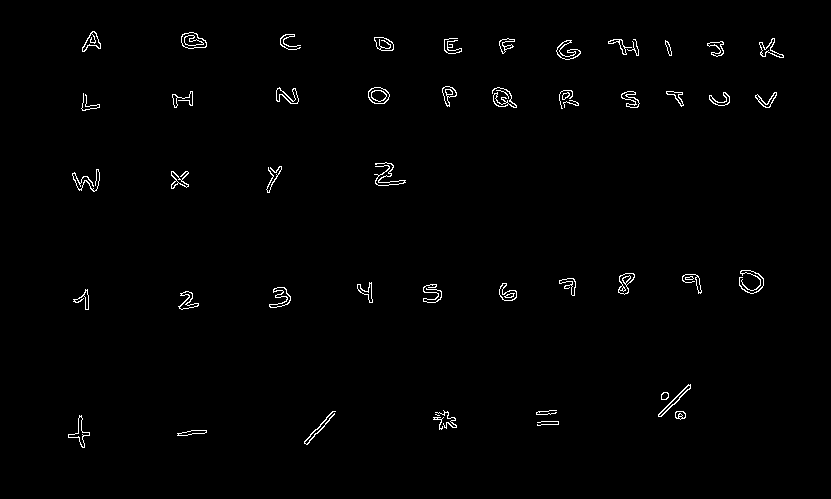 A B C D E F G H I J K
L M N O P Q R S T U V
W X Y Z
1 2 3 4 5 6 7 8 9 0
+ - / * = %